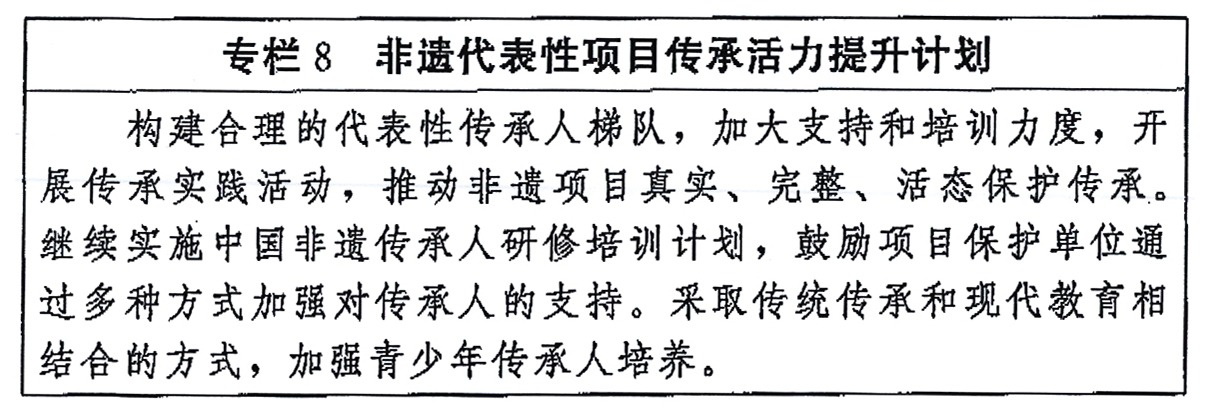 专栏 8 非遗代表性项目传承活力提升计划
构建合理的代表性传承人梯队，加大支持和培训力度，开
展传承实践活动，推动非遗项目真实、完整、活态保护传承。
继续实施中国非遗传承人研修培训计划，鼓励项目保护单位通
过多种方式加强对传承人的支持。采取传统传承和现代教育相
结合的方式，加强青少年传承人培养。